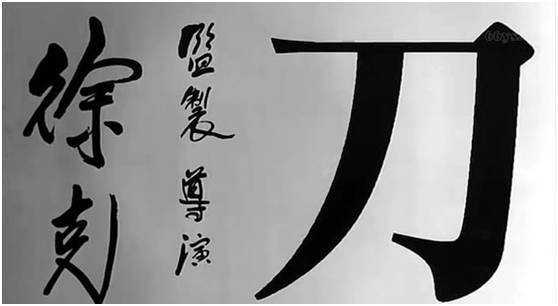 刀
監製 導演
徐克